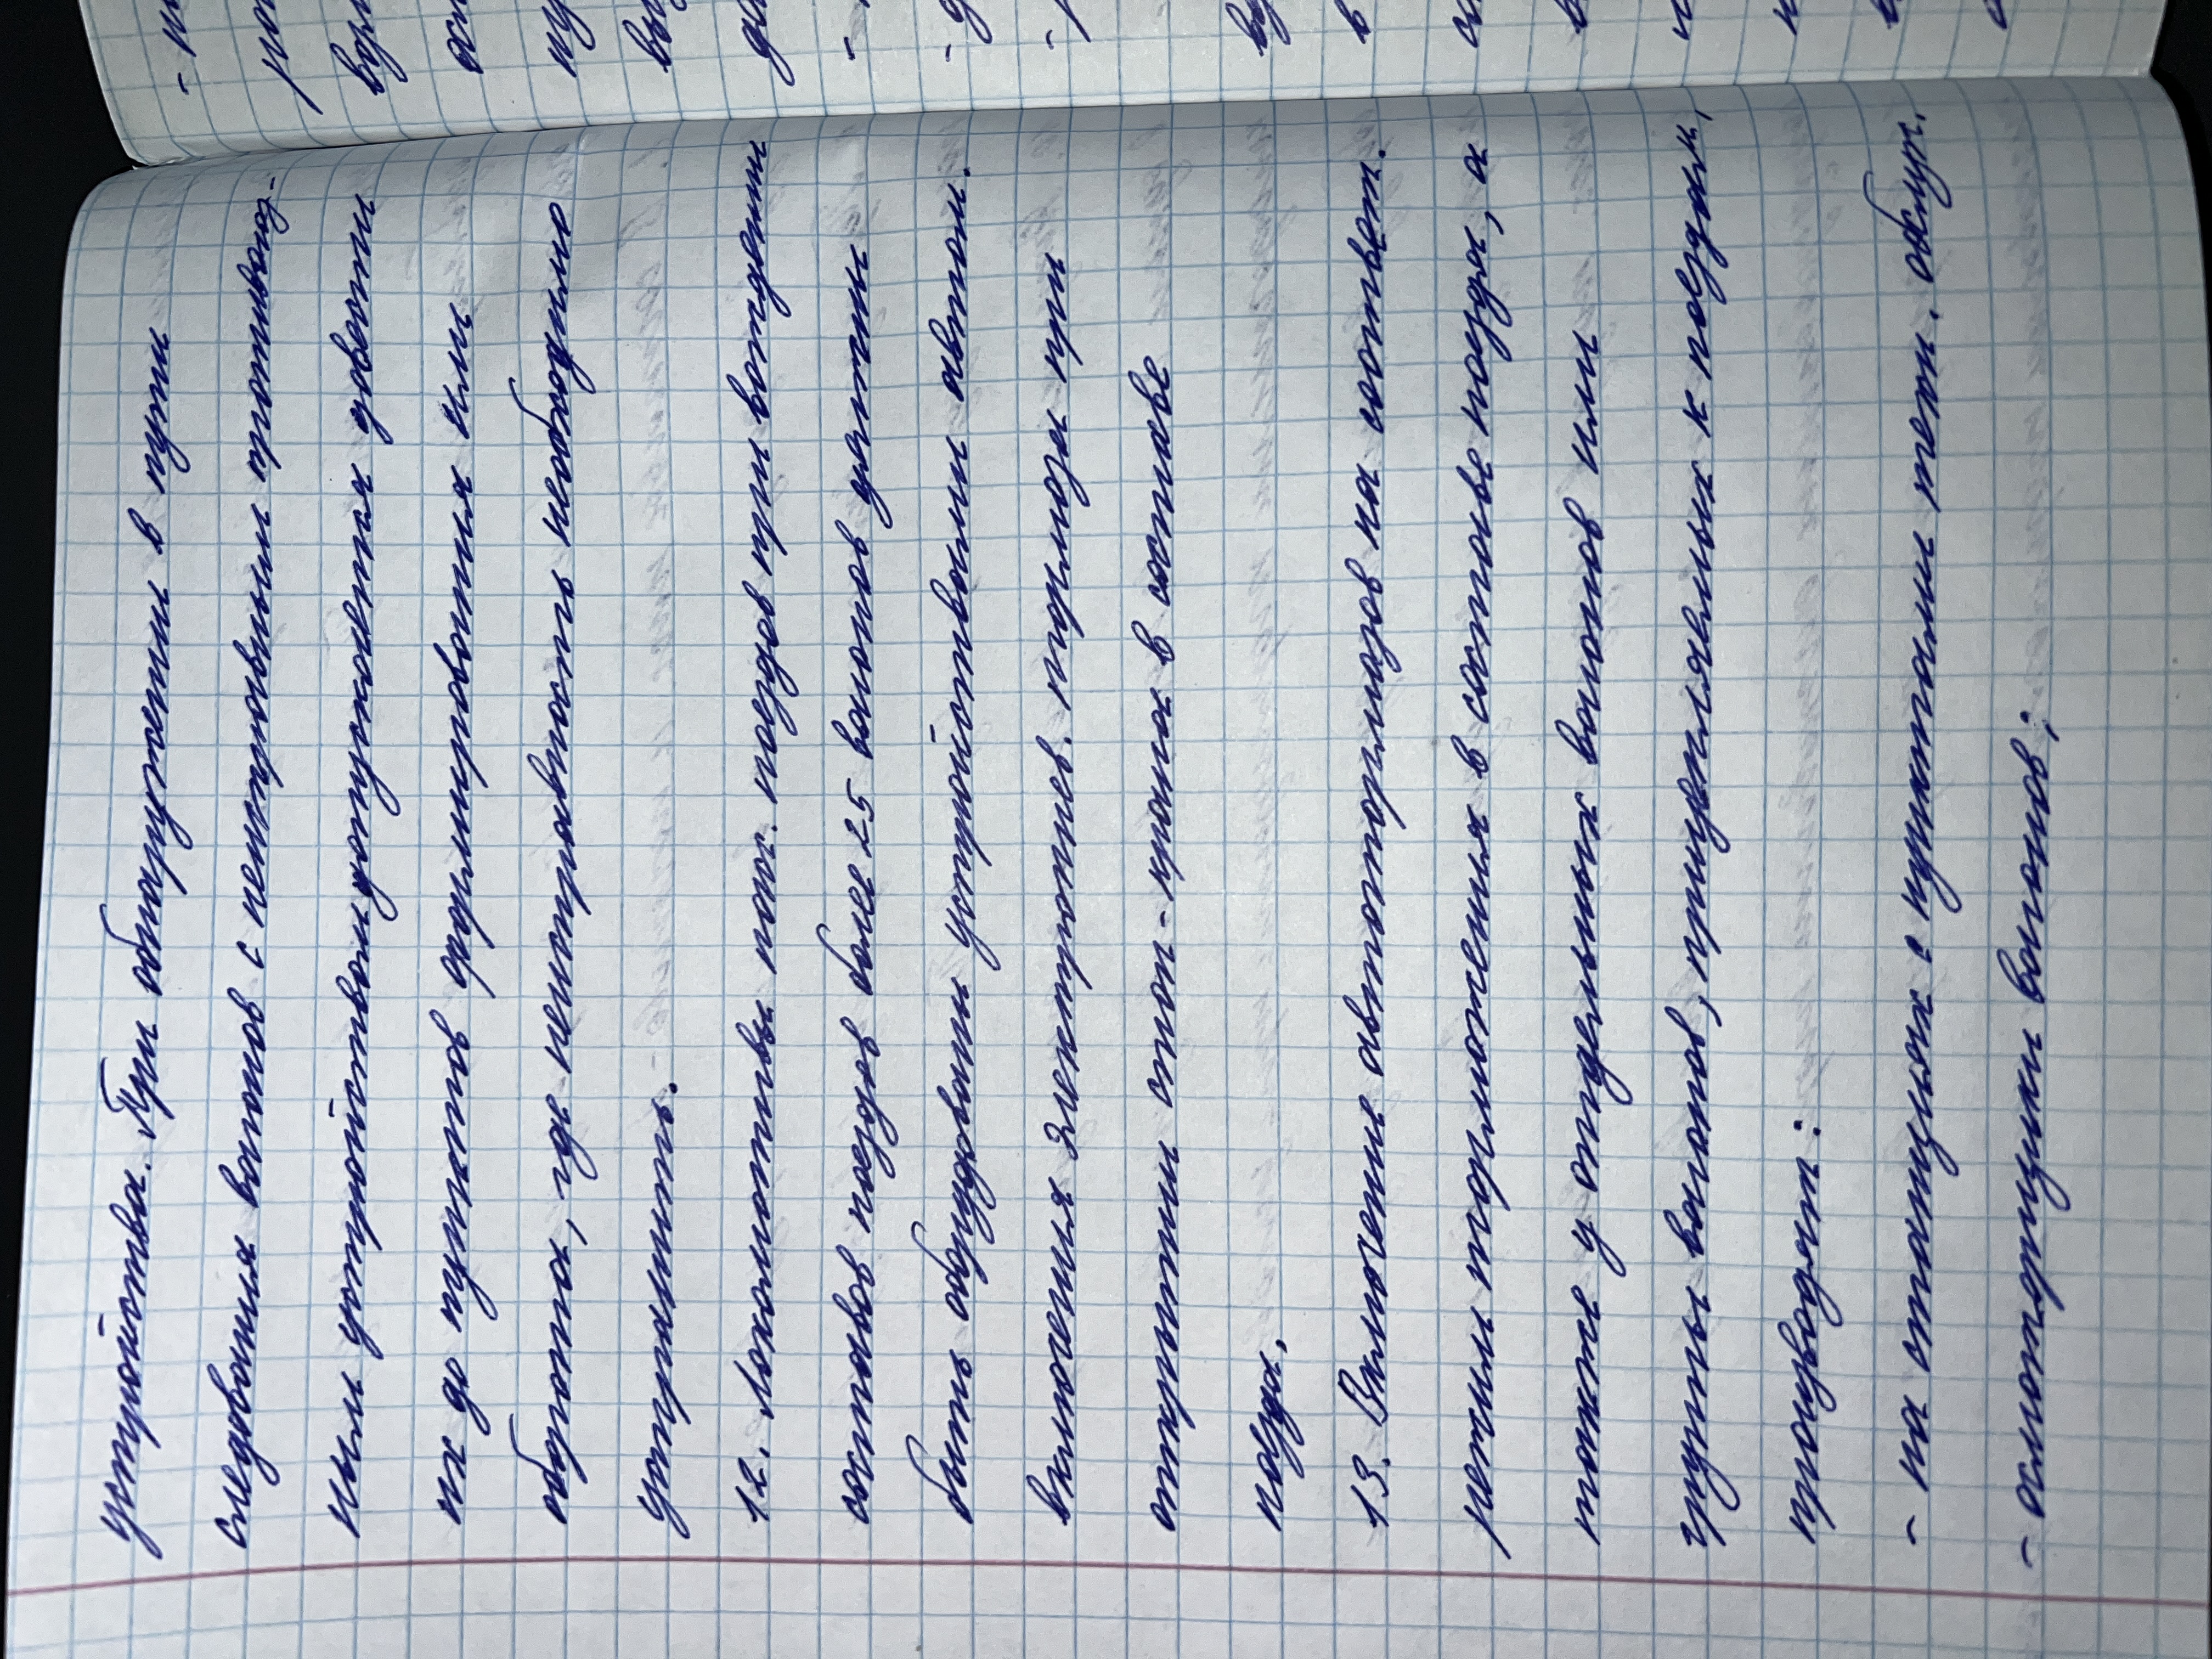 устройства. При обнаружении в пути
следования вагонов с неисправным противоюз-
ным устройством допускается довести
их до пунктов формирования или
оборота, где неисправность необходимо
устранить.
12. Локомотивы пас. поездов при вождении
составов поездов более 25 вагонов должны
быть оборудованы устройствами автом.
включения электропнев. тормоза при
открытии стоп-крана в составе
поезда.
13. Включение автотормозов на соответ.
режимы торможения в составе поезда, а
также у отдельных вагонов или
группы вагонов, прицепляемых к поездам,
производят:
- на станциях с пунктами техн. обслуж.
- осмотрщики вагонов;